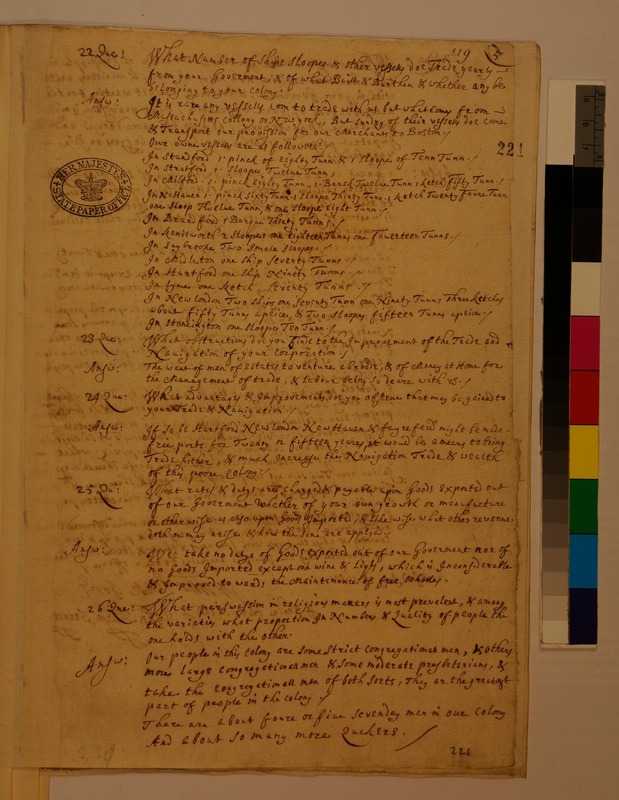 119
221
HER MAJESTYS STATE PAPER OFFICE
22 Que: What Number of Ships Sloopes & other vessels doe Trade yearly
from your Goverment, & of what Built & Burthen & whether any be
belonging to your Colony.
Answ: It is rare any vessells com to trade with us but what com from
Massachusets Collony or New yorke, But sundry of their vessels doe come
& Transport our provission for our Merchants to Boston.
Our owne vessells are as followeth
In Standford 1 pinck of Eighty Tunn & 1 Sloope of Tenn Tunn.
In Stratford 1 Sloope Twelve Tunn,
In Milford 1 pinck Eighty Tunn, 1 Barck Twelve Tunn 1 ketch fifty Tunn.
In N: Haven 1 pinck Sixty Tunn 1 Sloope Thirty Tunn 1 ketch Twenty Foure Tunn
one Sloop Twelve Tunn, & one Sloope Eight Tunn.
In Branford 1 Barque Thirty Tunns.
In Kenilworth 2 Sloopes one Eighteen Tunns one Fourteen Tunns.
In Saybrooke Two Smale Sloopes.
In Midleton one ship Seventy Tunns
In Hartford one Ship Ninety Tunns
In Lyme one ketch, Seventy Tunns.
In New London Two Ships one Seventy Tunn one Ninety Tunns Three ketches
about fifty Tunns apiece, & Two Sloopes fifteen Tunns apiece.
In Stoneington one Sloope Ten Tunn.
23 Que: What obstructions doe you finde to the Improvement of the Trade and
Navigation of your Corporation.
Answ: The want of men of Estates to venture abroade, & of Money at Home for
the Management of trade, & labour being so deare with us.
24 Que: What advantages & Improvements doe you observe that may be gained to
your Trade & Navigation.
Answ: If so be Hartford New London New Haven & fayrefeild might be made
free ports, for Twenty or fifteen yeares, it would be a meanes to bring
Trade hither, & much Increase the Navigation Trade & wealth
of this poore Colony.
25 Qu: What rates & dutys are charged & payable upon Goods Exported out
of our Goverment whether of your own growth or manufacture
or otherwise as also upon Goods Imported, & like wise what other revenue
doth or may arise & how the same are applyed.
Answ: Wee take no dutys of Goods exported out of our Goverment nor of
no Goods Imported except one wine & Liqrs, which is Inconsiderable
& Improved towards the Maintenance of free Schooles.
26 Que: What perswassion in religious matters is most prevalent, & among
the varieties what proportion In Numbers & Quality of people the
one holds with the other.
Answ: Our people in this Colony are some strict Congregationall men, & others
more large Congregationall men & some moderate presbiterians, &
take the Congregationall men of both sorts, They are the greatest
part of people in the Colony.
There are about foure or five sevenday men in our Colony
And about so many more Quakers.
221